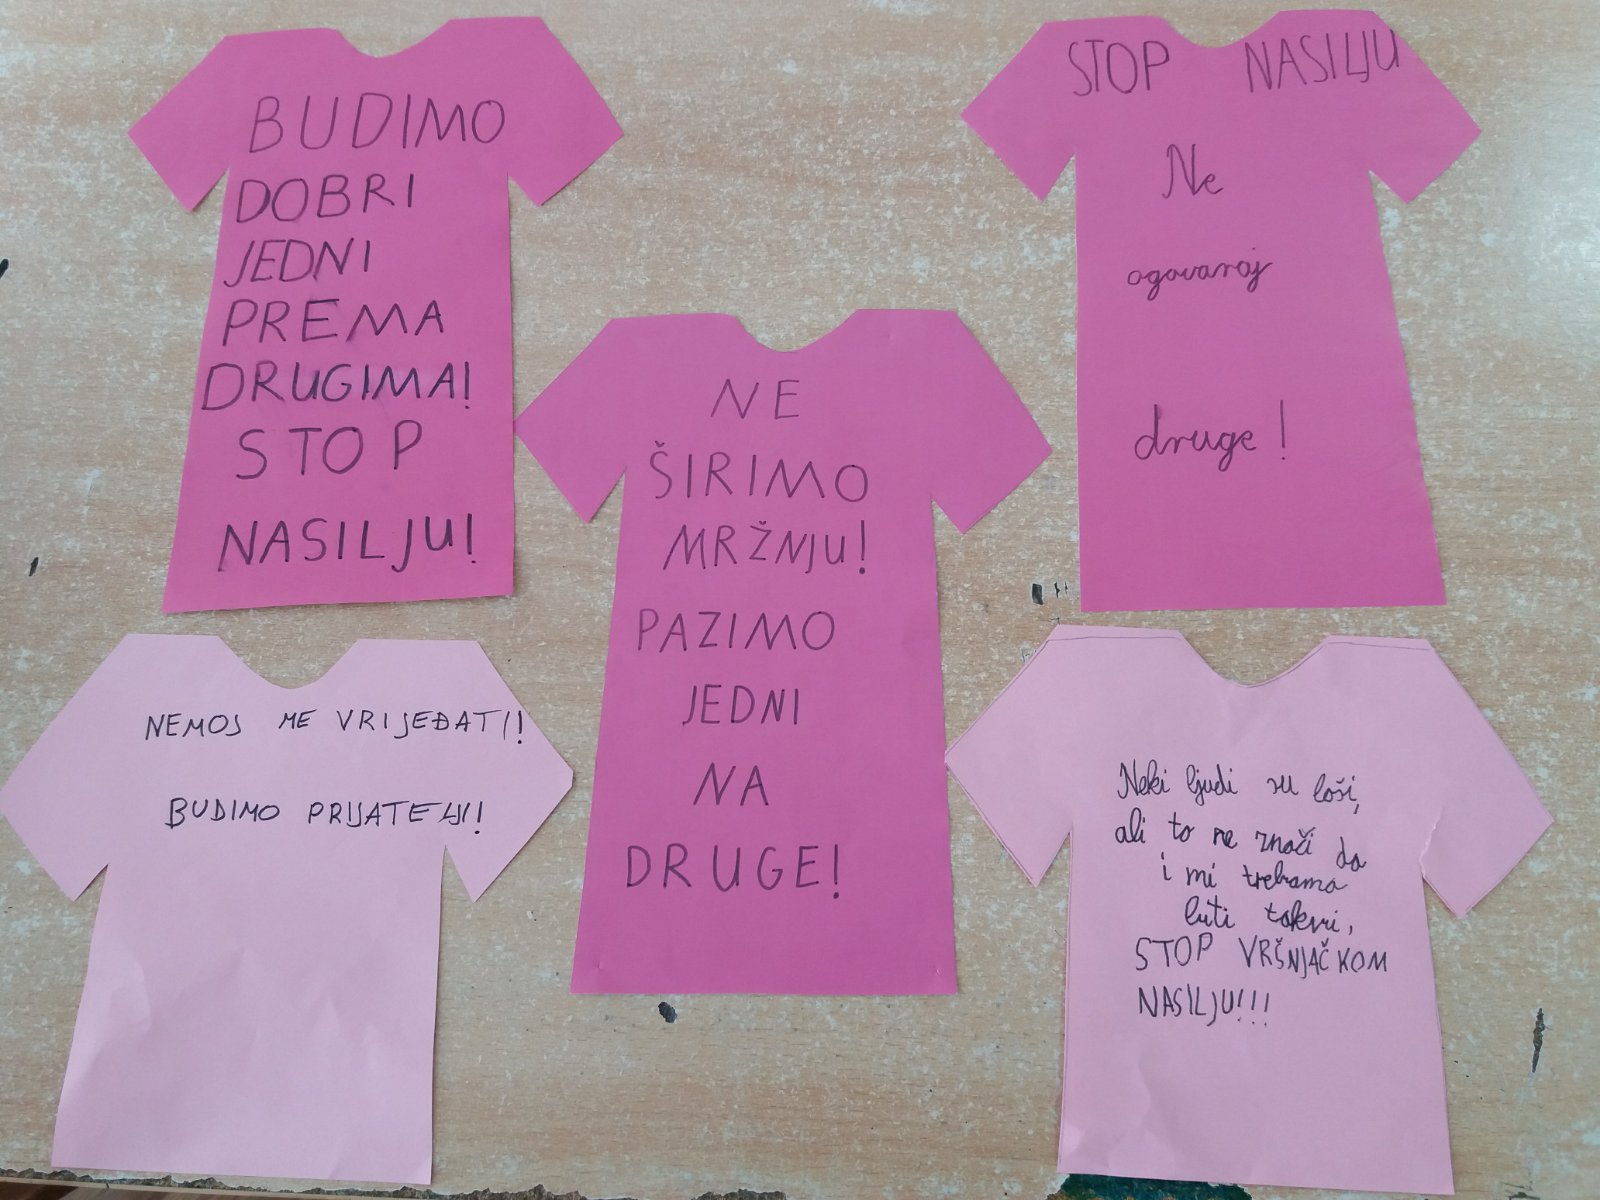 BUDIMO
DOBRI
JEDNI
PREMA
DRUGIMA!
STOP
NASILJU!
STOP NASILJU
Ne
ogovaraj
druge!
NE
ŠIRIMO
MRŽNJU!
PAZIMO
JEDNI
NA
DRUGE!
NEMOJ ME VRIJEĐATI!
BUDIMO PRIJATELJI!
Neki ljudi su loši,
ali to ne znači da
i mi trebamo
biti takvi,
STOP VRŠNJAČKOM
NASILJU!!!